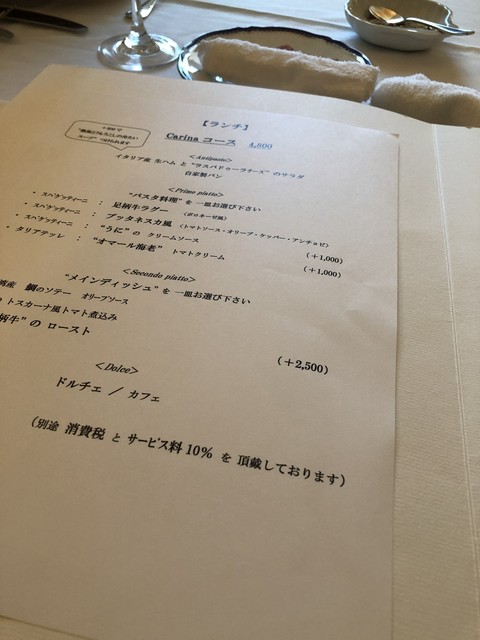 【ランチ】
Carina コース 4,800
+800で
スープ" つけられます
<Antipasto>
イタリア産 生ハム と "ラスパドゥーラチーズ" のサラダ
自家製パン
<Primo piatto>
"パスタ料理" を 一皿お選び下さい
・ スパゲッティーニ : 足柄牛ラグー (ボロネーゼ風)
・ スパゲッティーニ : プッタネスカ風 (トマトソース・オリーブ・ケッパー・アンチョビ)
・ スパゲッティーニ : "うに" の クリームソース (+1,000)
・ タリアテッレ : "オマール海老" トマトクリーム (+1,000)
<Secondo piatto>
"メインディッシュ" を 一皿お選び下さい
産 鯛のソテー オリーブソース
トスカーナ風トマト煮込み
柄牛" の ロースト (+2,500)
<Dolce>
ドルチェ / カフェ
(別途 消費税 と サービス料 10% を 頂戴しております)